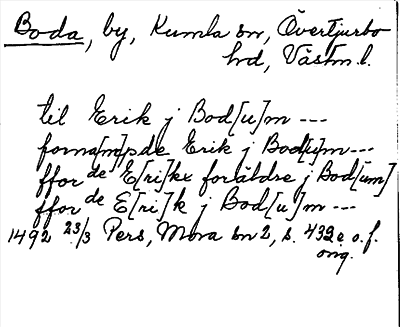 Boda, by, Kumla sn, Övertjurbo
hd, Västm. l.
til Erik j Bod[u]m ---
forna[m]pde Erik j Bod[u]m ---
ffor de E[ri]kx foráldre j Bod[um]
ffor de E[ri]k j Bod[u]m ---
1492 23/3 Pers, Mora sn 2, s. 432 o. f.
orig.